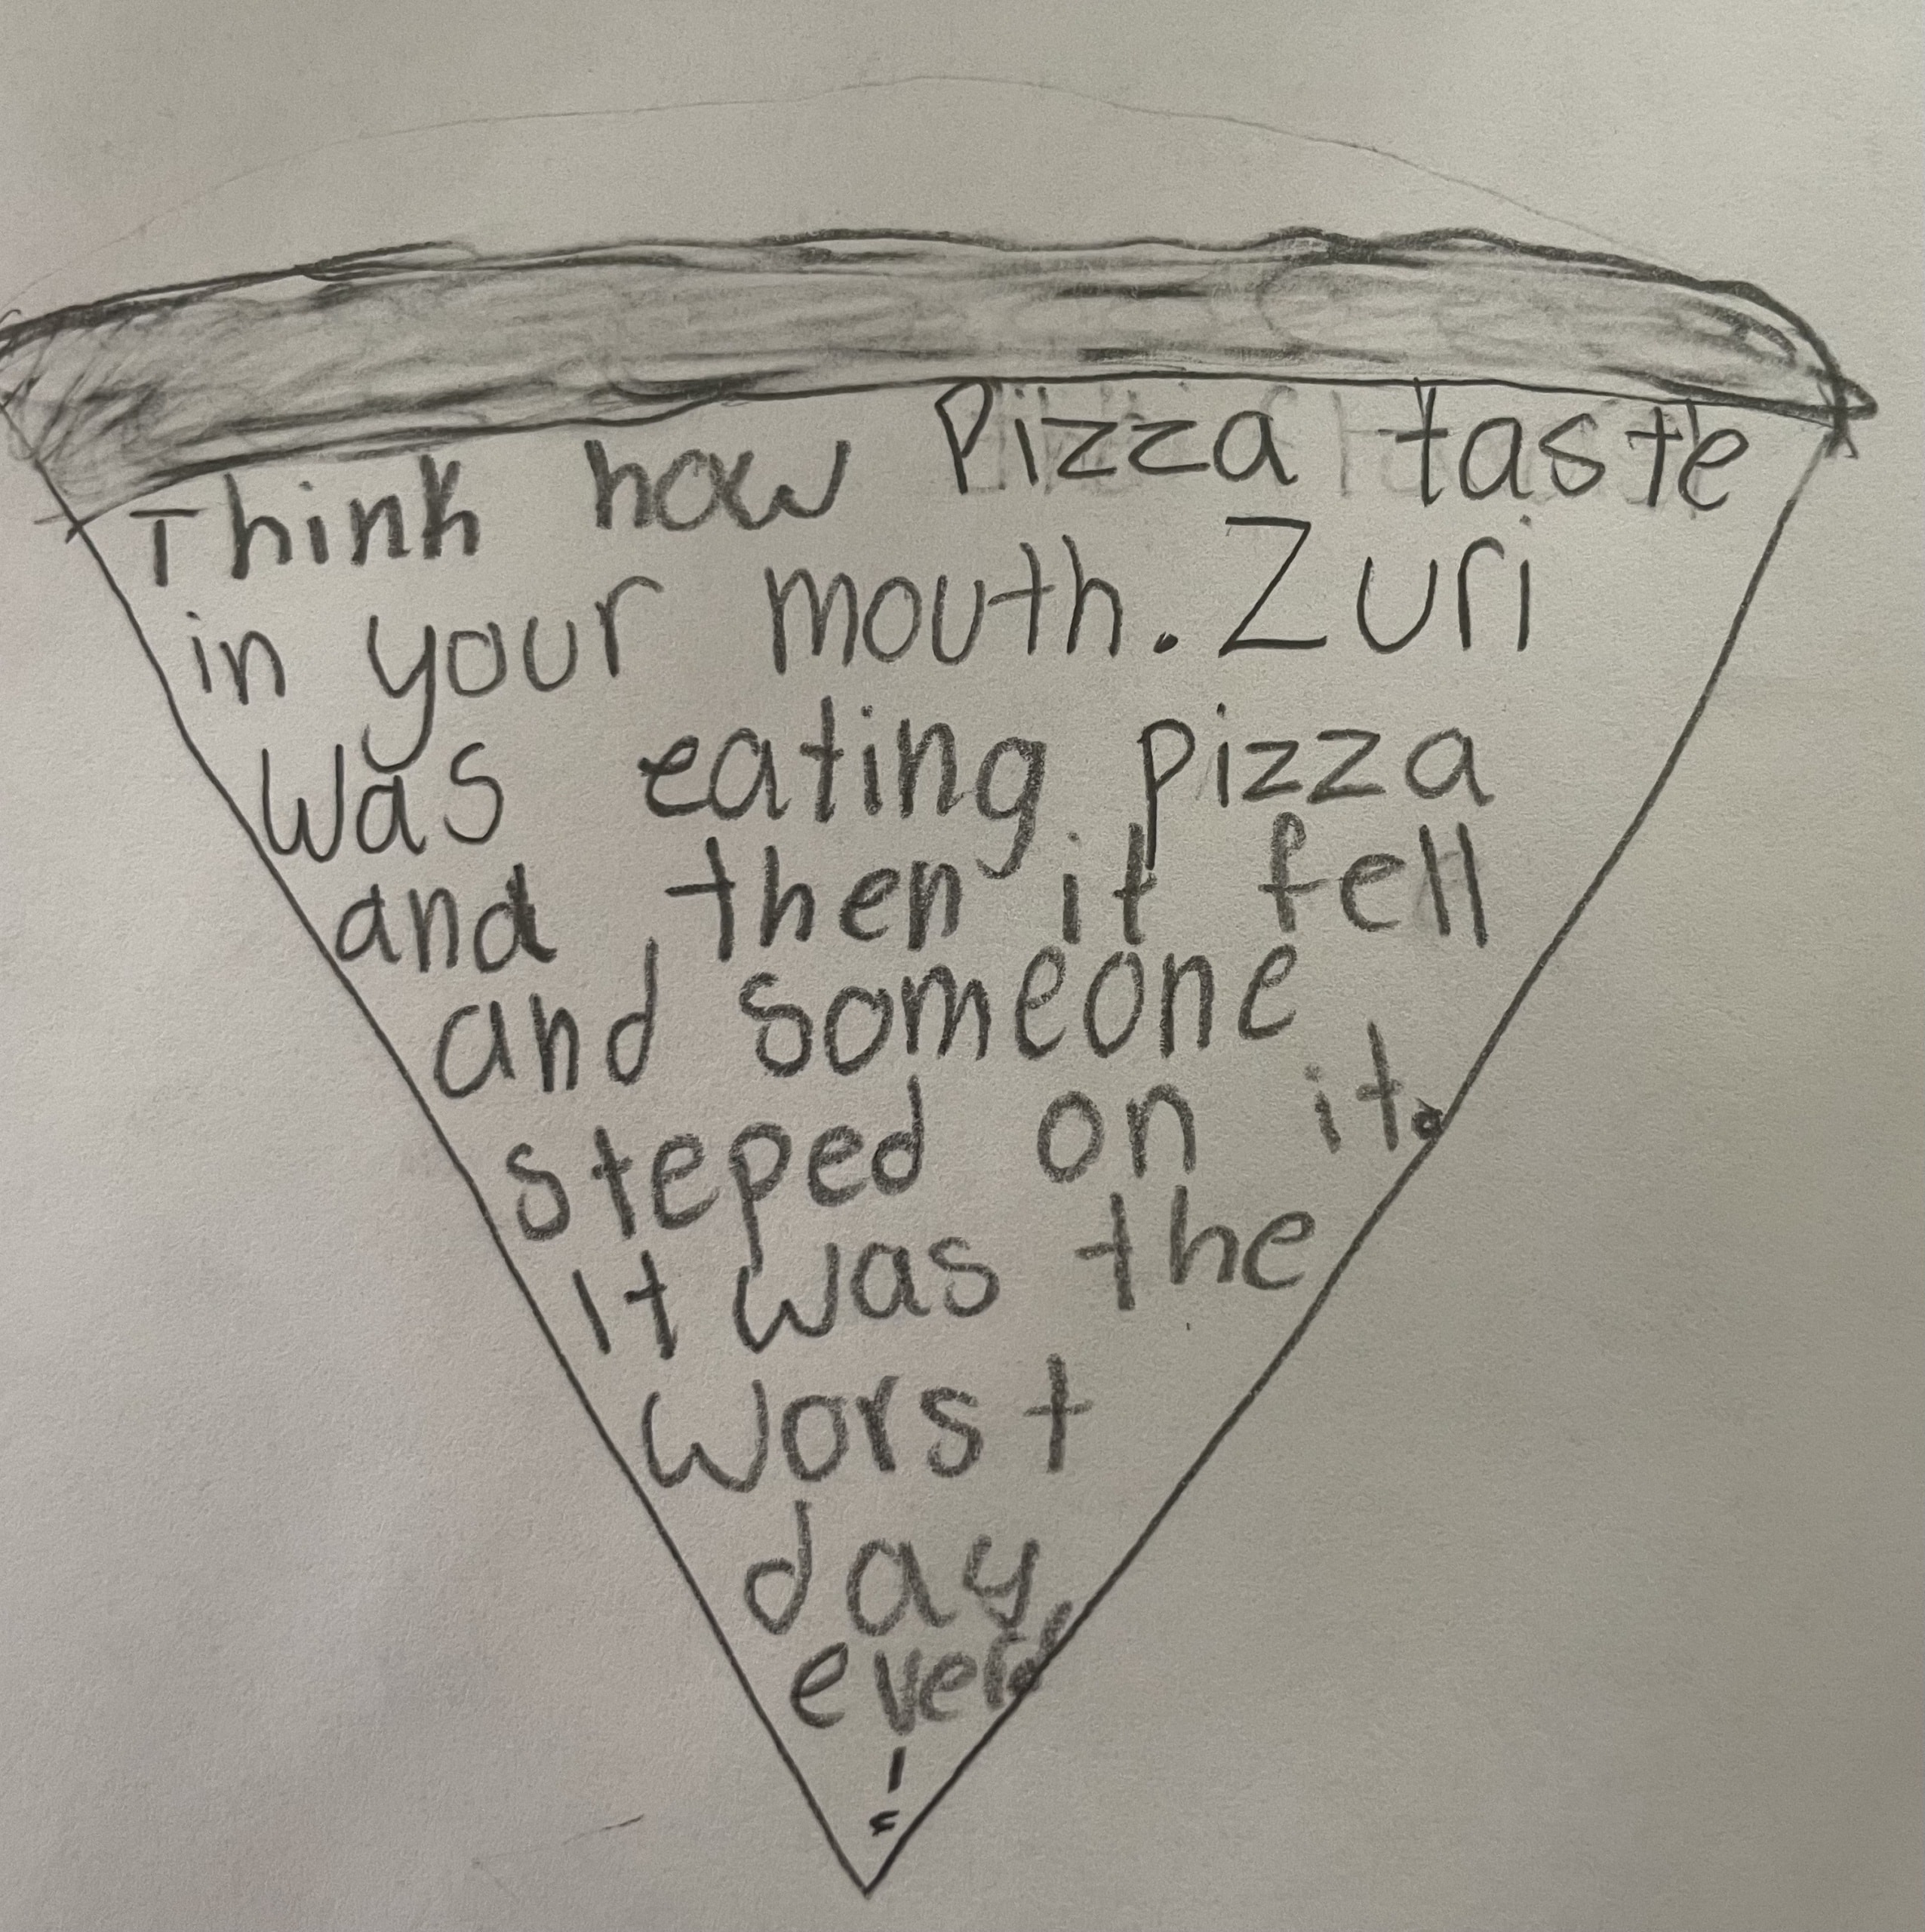 Think how Pizza taste
in your mouth. Zuri
was eating pizza
and then it fell
and someone
steped on it.
It was the
worst
day
ever
!